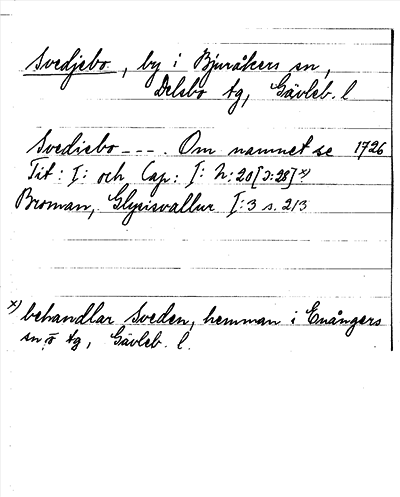 Svedjebo, by i Bjuråkers sn,
Delsbo tg, Gävleb. l
Svediebo --- . Om namnet se 1726
Tit: I: och Cap: I: N: 20 [ɔ: 28] x)
Broman, Glysisvallur I:3 s. 213
x) behandlar Sveden, hemman i Enångers
sn o tg, Gävleb. l.